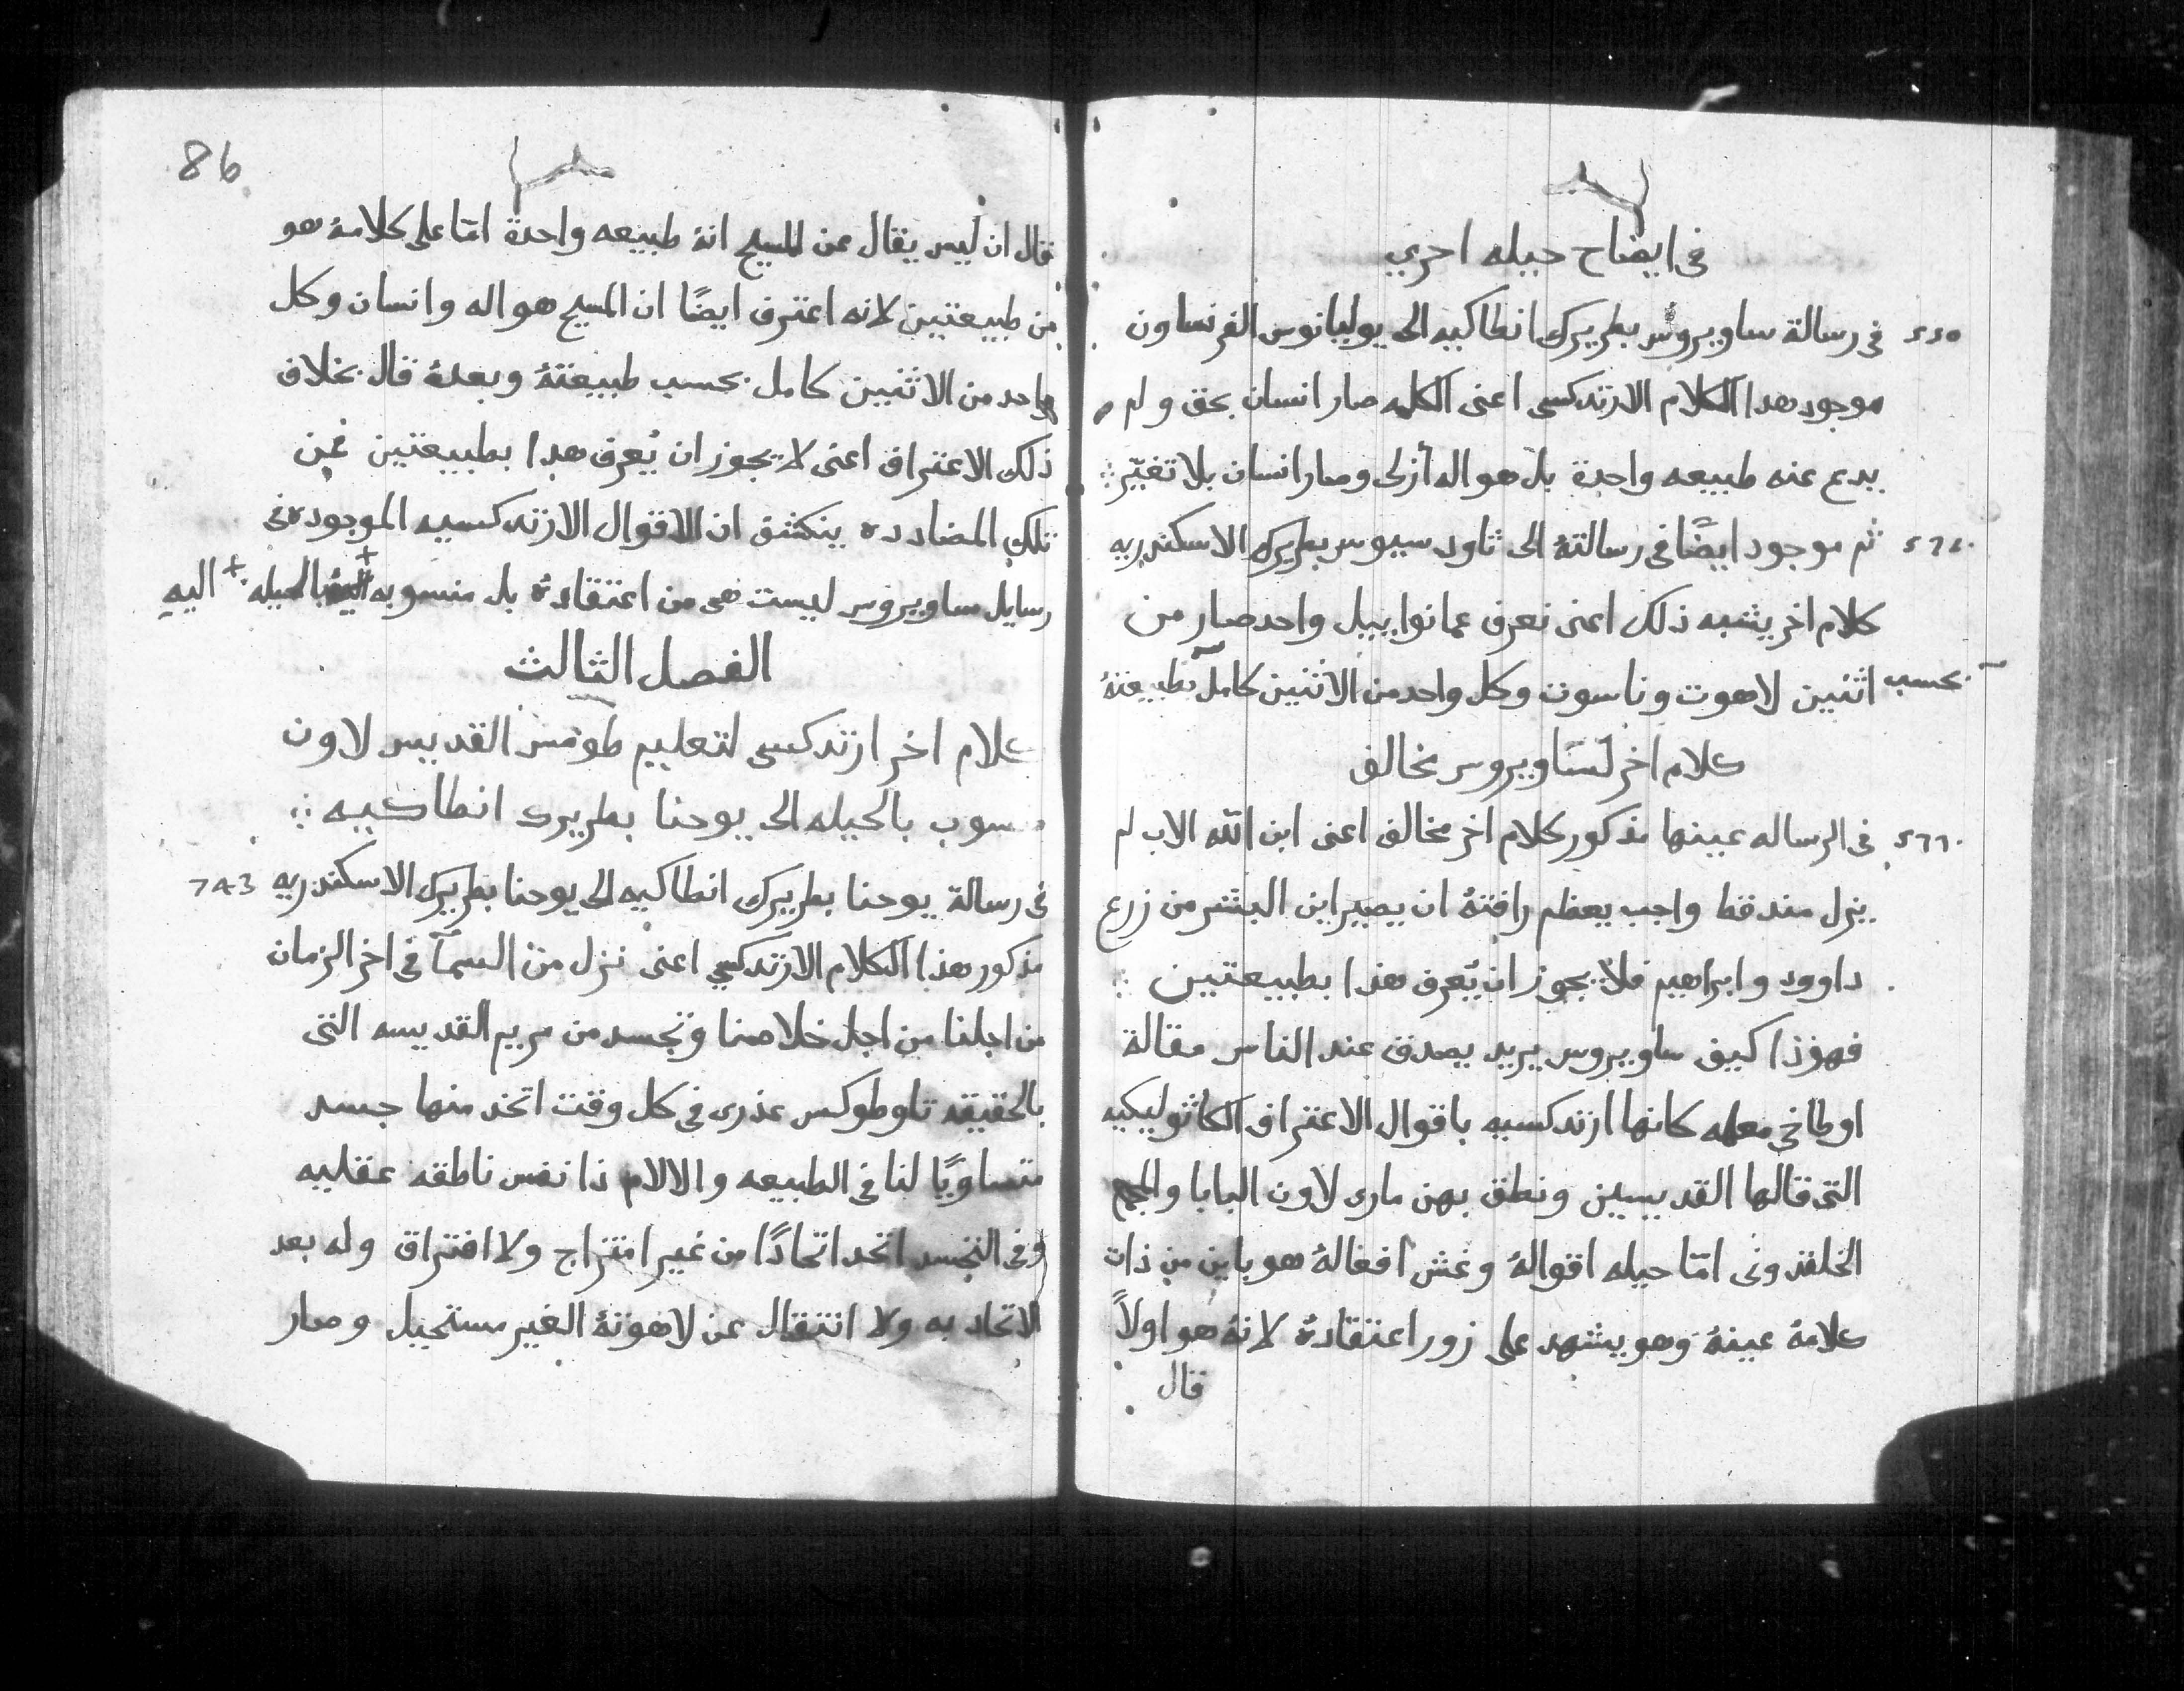 في ايضاح حيله اخري
٥٥٥ في رسالة ساويروس بطريرك انطاكيه الى يوليانوس الفرنساون
موجود هدا الكلام الارتدكسي اعنى الكلمه صار انسان بحق ولم
يدع عنه طبيعه واحدة بل هو اله أزلى وصار انسان بلا تغيّر
ثم موجود ايضًا في رسالتهُ الى تاودسيوس بطريرك الاسكندريه
كلام اخر يشبه ذلك اعنى نعرف عمانواييل واحد صار من
بحسب اثنين لاهوت وناسوت وكل واحد من الاثنين كامل بطبيعتهُ
كلام اخر لساويروس مخالف
في الرساله عينها مذكور كلام اخر مخالف اعنى ابن الله الاب لم
يزل مند قط واجب يعظم رافتهُ ان يصير ابن البشر من زرع
داوود وابراهيم فلا يجوز ان يُعرف هذا بطبيعتين
فهوذا كيف ساويروس يريد يصدق عند الناس مقالة
اوطاخي معلمه كانها ارتدكسيه باقوال الاعتراف الكاثوليكيه
التى قالها القديسين ونطق بهن مارى لاون البابا والمجمع
الخلقدونى امّا حيله اقوالهُ وغش افعالهُ هو باين من ذات
كلامهُ عينهُ وهو يشهد على زور اعتقادهُ لانهُ هو اولاً
قال
86
قال ان ليس يقال عن المسيح انهُ طبيعه واحدة امّا على كلامهُ هو
من طبيعتين لانه اعترف ايضًا ان المسيح هو اله وانسان وكل
واحد من الاثنين كامل بحسب طبيعتهُ وبعدهُ قال بخلاف
ذلك الاعتراف اعنى لا يجوز ان يُعرف هدا بطبيعتين فمن
تلك المضادده ينكشف ان الاقوال الارتدكسيه الموجوده في
رسايل ساويروس ليست هى من اعتقادهُ بل منسوبه + بالحيله + اليهِ
الفصل الثالث
كلام اخر ارتدكسى لتعليم طومس القديس لاون
منسوب بالحيله الى يوحنا بطريرك انطاكيه
في رسالة يوحنا بطريرك انطاكيه الى يوحنا بطريرك الاسكندريه 743
مذكور هذا الكلام الارتدكسي اعنى نزل من السمآ في اخر الزمان
من اجلنا من اجل خلاصنا وتجسد من مريم القديسه التى
بالحقيقه تاوطوكس عذرى في كل وقت اتخد منها جسد
متساويًا لنا في الطبيعه والالام ذا نفس ناطقه عقليه
وفى التجسد اتحد اتحادًا من غير امتزاج ولا افتراق وله بعد
الاتحاد به ولا انتقال عن لاهوتهُ الغير مستحيل وصار